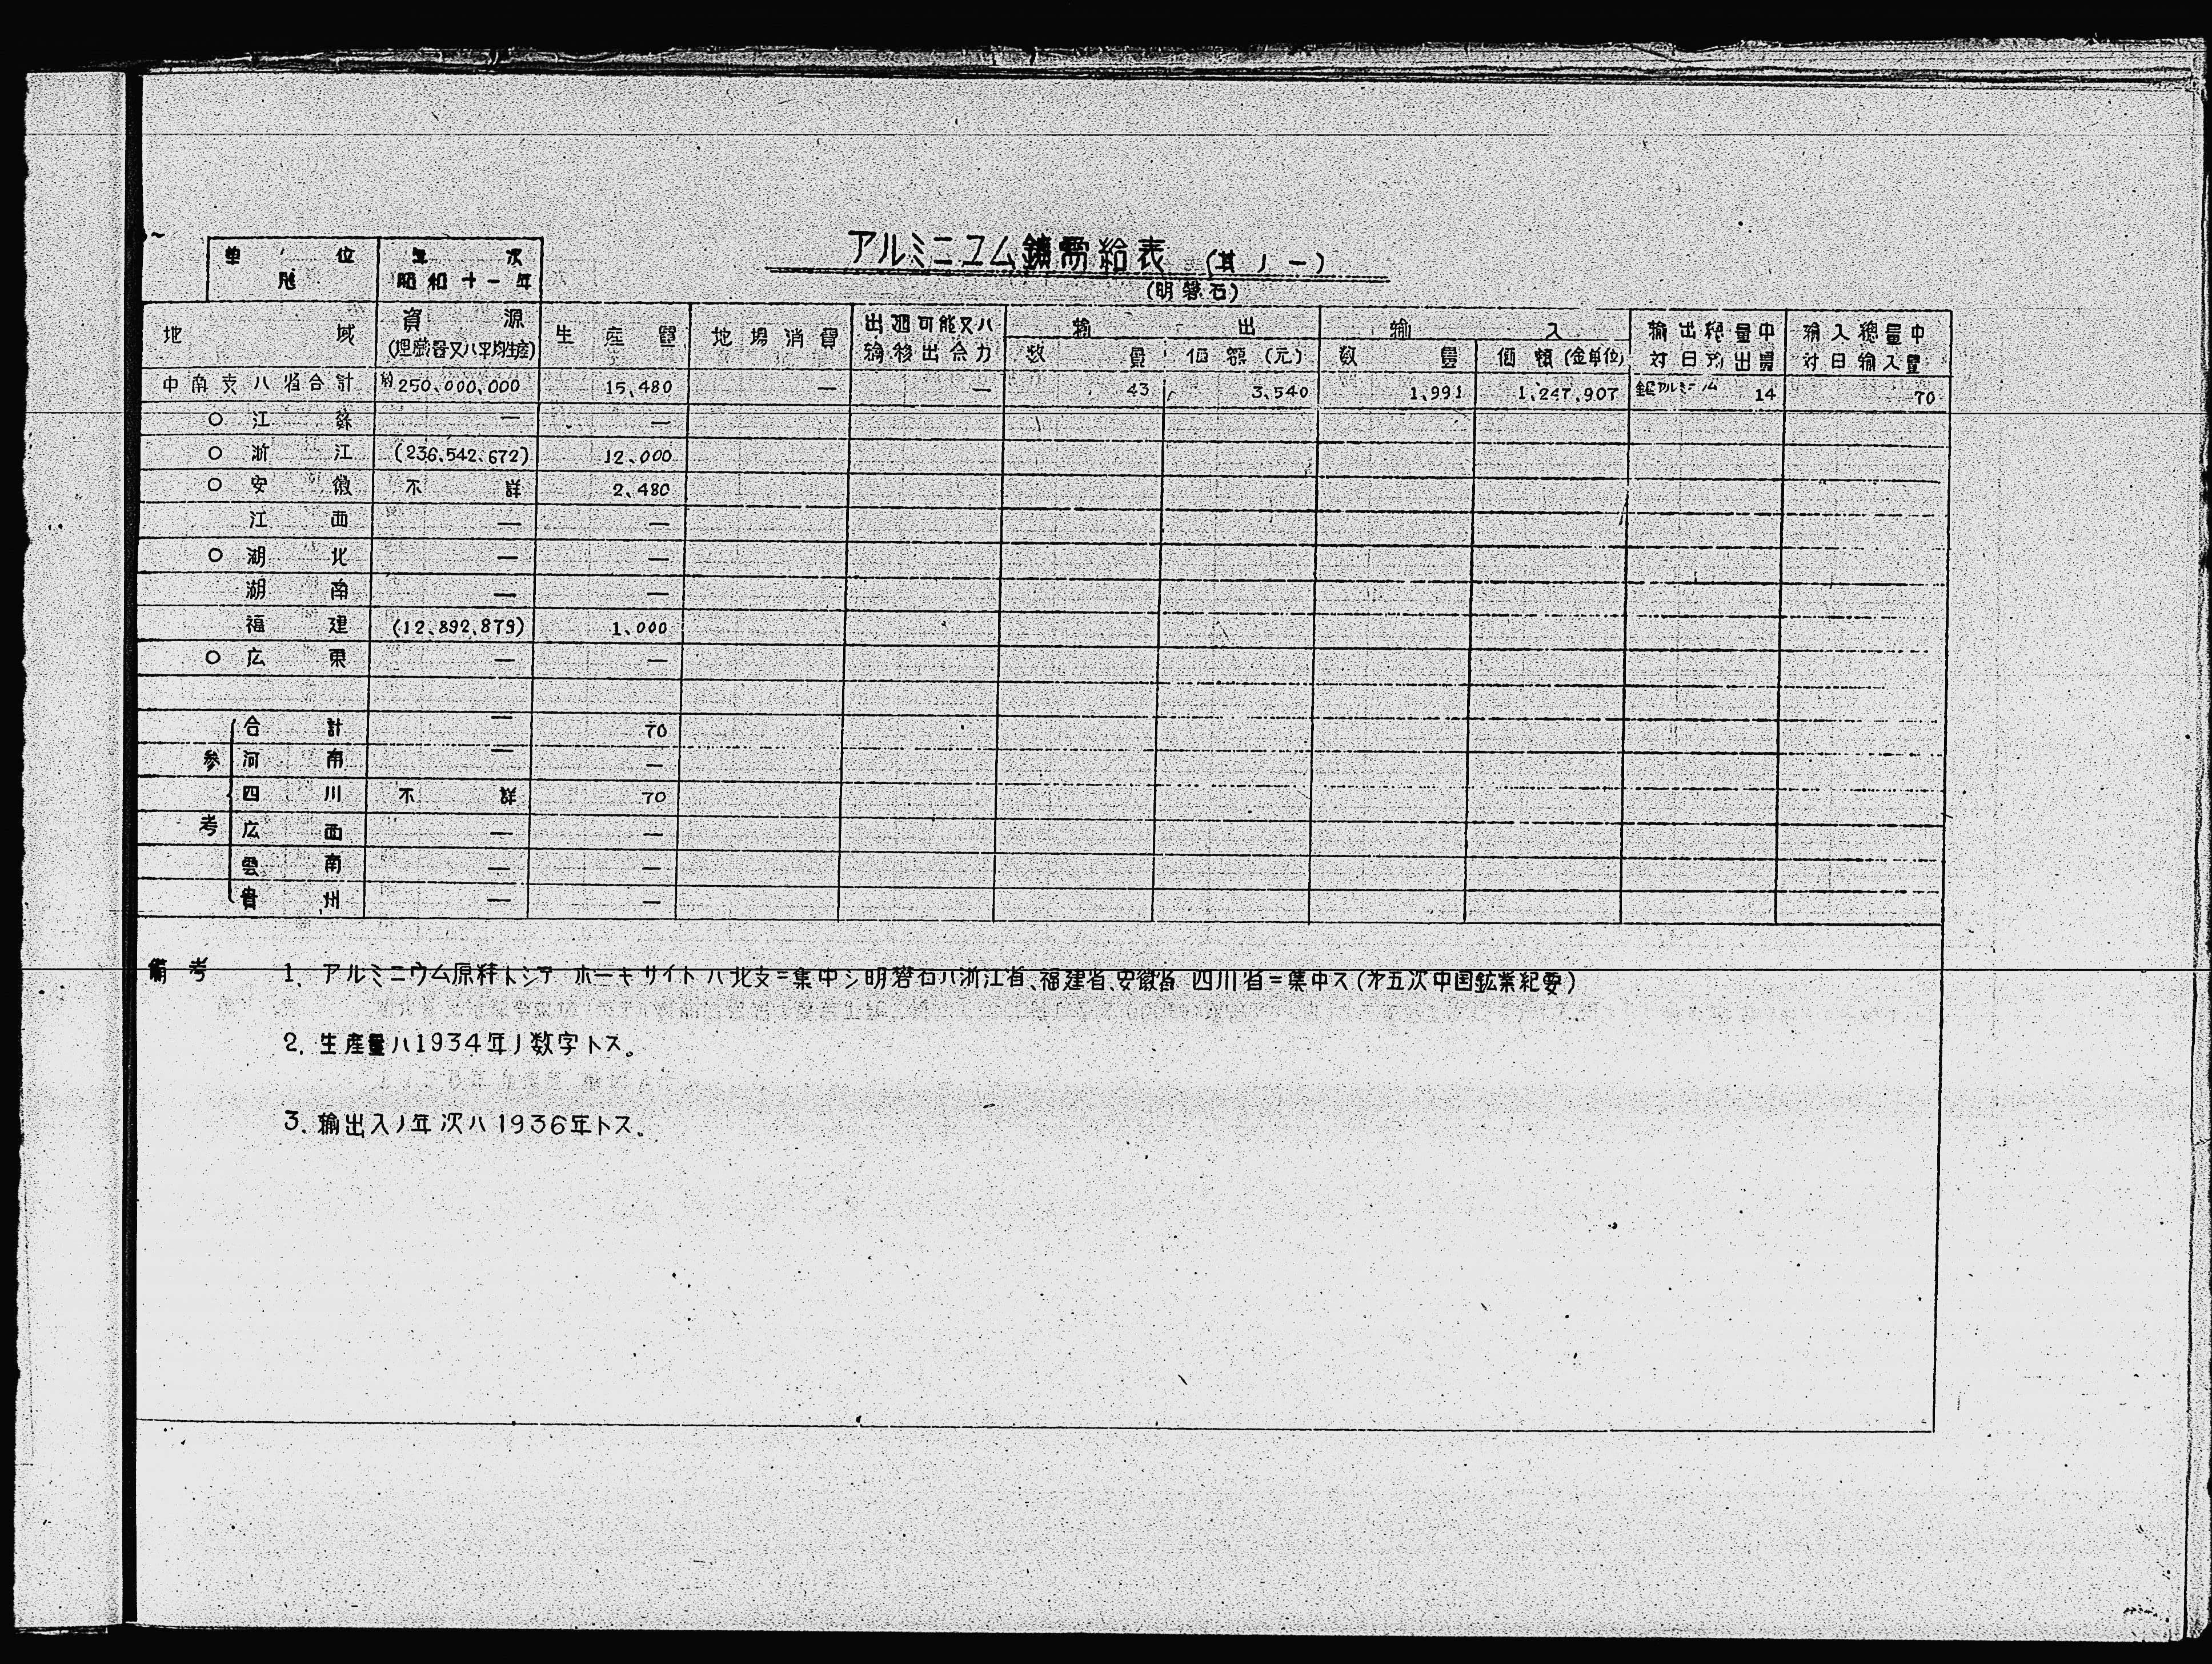 アルミニユム鑛需給表 (其ノ一)
(明礬石)
単位 瓲
年次 昭和十一年
地域 資源 (埋蔵量又ハ平均生産) 生産量 地場消費 出廻可能又ハ輸移出余力 輸出 輸入 輸出総量中対日輸出量 輸入總量中対日輸入量
数量 価額(元) 数量 価額(金単位)
中南支八省合計 約250,000,000 15,480 — — 43 3,540 1,991 1,247,907 アルミニム 14 70
○ 江蘇 — —
○ 浙江 (236,542,672) 12,000
○ 安徽 不詳 2,480
江西 — —
○ 湖北 — —
湖南 — —
福建 (12,892,879) 1,000
○ 広東 — —
参考
合計 — 70
河南 — —
四川 不詳 70
広西 — —
雲南 — —
貴州 — —
備考 1. アルミニウム原料トシテ ホーキサイトハ北支ニ集中シ明礬石ハ浙江省、福建省、安徽省 四川省ニ集中ス(才五次中国鉱業紀要)
2. 生産量ハ1934年ノ数字トス。
3. 輸出入ノ年次ハ1936年トス。